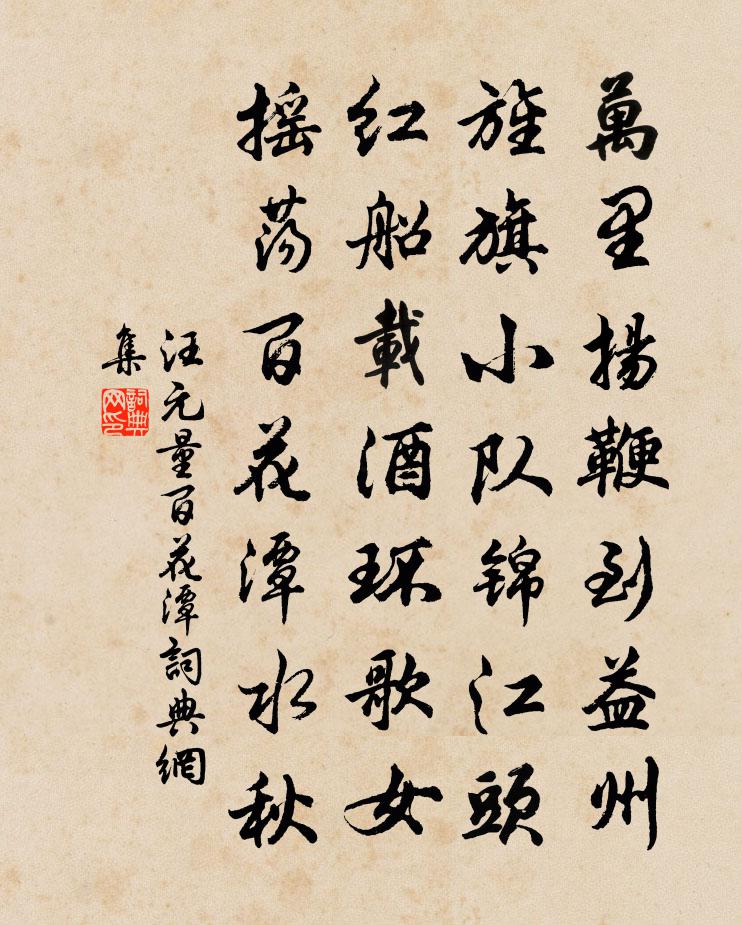 萬里揚鞭到益州
旌旗小队锦江頭
红船載酒环歌女
摇荡百花潭水秋
汪元量百花潭詞典網
集
詞典
网印